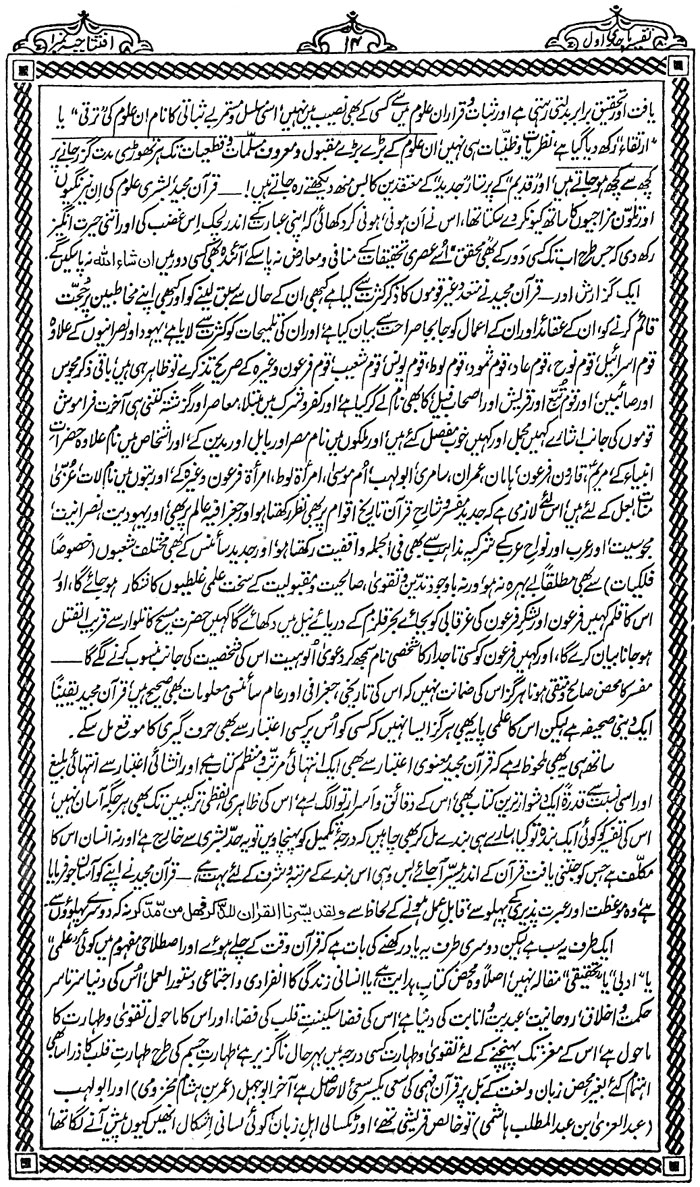 تفسیر ماجدی اول
۱۴
افتتاحیہ نمبر ۱
یافت اور تحقیق برابر بدلتی رہتی ہے اور ثبات و قرار ان علوم میں سے کسی کے بھی نصیب میں نہیں، اسی مسلسل و مستمر بے ثباتی کا نام ان علوم کی "ترقی" یا
"ارتقاء" رکھ دیا گیا ہے، نظریات و ظنیات ہی نہیں، ان علوم کے بڑے بڑے مقبول و معروف مسلّمات و قطعیات تک ہر تھوڑی مدت گزر جانے پر
کچھ سے کچھ ہو جاتے ہیں، اور "قدیم" کے پرستار "جدید" کے معتقدین کا بس منھ دیکھتے رہ جاتے ہیں! — قرآن مجید بشری علوم کی ان نیرنگیوں
اور تلوّن مزاجیوں کا ساتھ کیونکر دے سکتا تھا، اس نے اَن ہونی، ہونی کر دکھائی کہ اپنی عبارت کے اندر لچک اس غضب کی اور اتنی حیرت انگیز
رکھ دی کہ جس طرح اب تک کسی دور کے بھی محقق اسے عصری تحقیقات کے منافی و معارض نہ پا سکے، آئندہ بھی کسی دور میں ان شاء اللہ نہ پا سکیں گے۔
ایک گزارش اور — قرآن مجید نے متعدد غیر قوموں کا ذکر کثرت سے کیا ہے، کبھی ان کے حال سے سبق لینے کو اور کبھی اپنے مخاطبین پر حجت
قائم کرنے کو، ان کے عقائد اور ان کے اعمال کو جا بجا صراحت سے بیان کیا ہے، اور ان کی تلمیحات کو کثرت سے لایا ہے، یہود اور نصرانیوں کے علاوہ
قوم اسرائیل، قوم نوح، قوم عاد، قوم ثمود، قوم لوط، قوم یونس، قوم شعیب، قوم فرعون وغیرہ کے صریح تذکرے تو ظاہر ہی ہیں، باقی ذکر مجوس
اور صائبین، اور قوم تبّع اور قریش اور اصحاب فیل، کا بھی نام لے کر کیا ہے، اور کفر و شرک میں مبتلا، معاصر اور گزشتہ کتنی ہی آخرت فراموش
قوموں کی جانب اشارے کہیں مجمل اور کہیں خوب مفصل کئے ہیں، اور ملکوں میں نام مصر اور بابل اور مدین کے، اور اشخاص میں نام علاوہ حضرات
انبیاء کے مریمؑ، قارون، فرعون، ہامان، عمران، سامری، ابولہب، اُم موسیٰ، امرأۃ لوط، امرأۃ فرعون وغیرہ کے، اور بتوں میں نام لات، عُزّیٰ
منات، بعل کے لئے ہیں، اس لئے لازمی ہے کہ جدید مفسر و شارح قرآن تاریخ اقوام پر بھی نظر رکھتا ہو، اور جغرافیہ عالم پر بھی، اور یہودیت، نصرانیت،
مجوسیت، اور عرب اور نواح عرب کے شرکیہ مذاہب سے بھی فی الجملہ واقفیت رکھتا ہو، اور جدید سائنس کے بھی مختلف شعبوں (خصوصاً
فلکیات) سے بھی مطلقاً بے بہرہ نہ ہو، ورنہ باوجود تدین و تقویٰ، صالحیت و مقبولیت کے سخت علمی غلطیوں کا شکار ہو جائے گا، اور
اس کا قلم کہیں فرعون اور لشکر فرعون کی غرقابی کو بجائے بحر قلزم کے دریائے نیل میں دکھائے گا، کہیں حضرت مسیح کا تلوار سے قریب القتل
ہو جانا بیان کرے گا، اور کہیں فرعون کو کسی تاجدار کا شخصی نام سمجھ کر دعویٰ اُلوہیت اس کی شخصیت کی جانب منسوب کرنے لگے گا —
مفسر کا محض صالح و متقی ہونا ہرگز اس کی ضمانت نہیں کہ اس کی تاریخی، جغرافی اور عام سائنسی معلومات بھی صحیح ہیں، قرآن مجید یقیناً
ایک دینی صحیفہ ہے لیکن اس کا علمی پایہ بھی ہرگز ایسا نہیں کہ کسی کو اُس پر کسی اعتبار سے بھی حرف گیری کا موقع مل سکے۔
ساتھ ہی یہ بھی ملحوظ رہے کہ قرآن مجید معنوی اعتبار سے بھی ایک انتہائی مرتب و منظم کتاب ہے، اور انشائی اعتبار سے انتہائی بلیغ
اور اسی نسبت سے قدرۃً ایک دشوار ترین کتاب بھی، اس کے دقائق و اسرار تو الگ رہے، اس کی ظاہری لفظی ترکیبیں تک بھی ہر جگہ آسان نہیں،
اس کی تفسیر کو کوئی ایک بندہ تو کیا، سارے ہی بندے مل کر بھی چاہیں کہ درجۂ تکمیل کو پہنچا دیں تو یہ حدِّ بشری سے خارج ہے، اور نہ انسان اس کا
مکلّف ہے، جس کو جتنی یافت قرآن کے اندر میسر آ جائے، بس وہی اس بندے کے مرتبہ و شرف کے لئے بہت ہے، — قرآن مجید نے اپنے کو آسان جو فرمایا
ہے، وہ موعظت اور عبرت پذیری کے پہلو سے، قابل عمل ہونے کے لحاظ سے ولقد یسّرنا القراٰن للذکر فھل من مدّکر نہ کہ دوسرے پہلوؤں سے۔
ایک طرف یہ سب ہے لیکن دوسری طرف یہ یاد رکھنے کی بات ہے کہ قرآن وقت کے چلے ہوئے اور اصطلاحی مفہوم میں کوئی "علمی"
یا "ادبی" یا "تحقیقی" مقالہ نہیں، اصلاً وہ محض کتاب ہدایت ہے، یا انسانی زندگی کا انفرادی و اجتماعی دستور العمل، اُس کی دنیا سرتاسر
حکمت و اخلاق، روحانیت، عبدیت و انابت کی دنیا ہے، اس کی فضا سکینتِ قلب کی فضا، اور اس کا ماحول تقویٰ و طہارت کا
ماحول ہے، اس کے مغز تک پہنچنے کے لئے تقویٰ و طہارت کسی درجہ میں بہرحال ناگزیر ہے، طہارتِ جسم کی طرح طہارتِ قلب کا ذرا سا بھی
اہتمام کئے بغیر محض زبان و لغت کے بل پر قرآن فہمی کی سعی یکسر سعیٔ لاحاصل ہے، آخر ابوجہل (عمر بن ہشام مخزومی) اور ابولہب
(عبدالعزیٰ بن عبدالمطلب ہاشمی) تو خالص قریشی تھے، اور ٹکسالی اہل زبان، کوئی لسانی اِشکال انھیں کیوں پیش آنے لگا تھا،